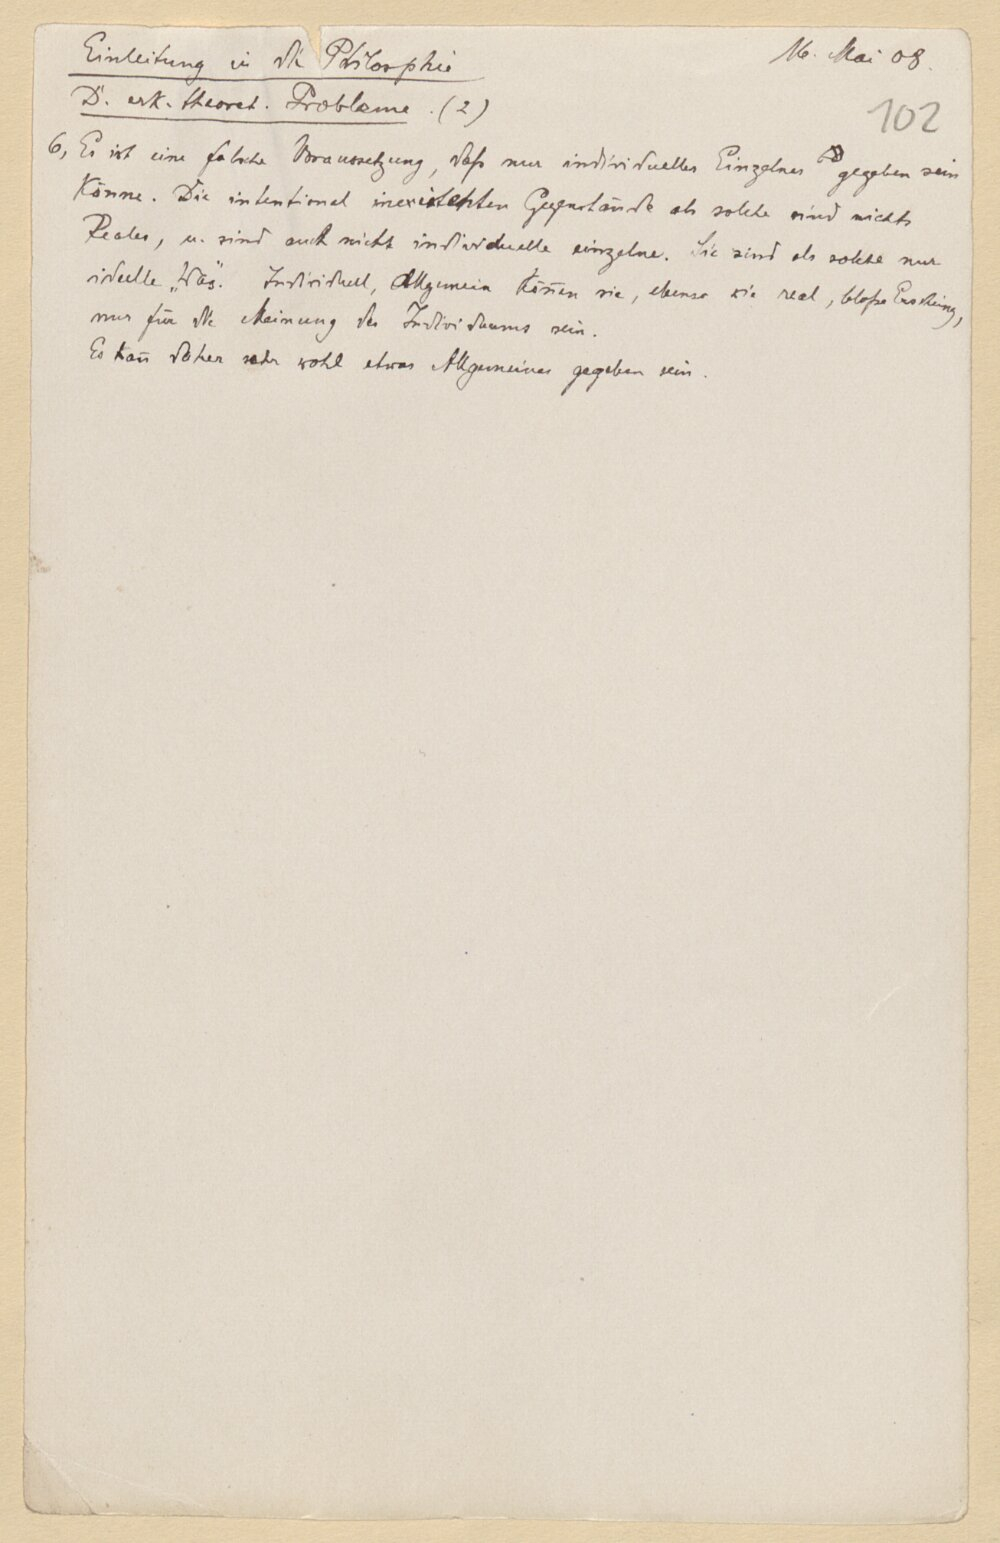 Einleitung in die Philosophie
16. Mai 08.
D. erk. theoret. Probleme. (2)
102
6, Es ist eine falsche Voraussetzung, daß nur individuelles Einzelnes gegeben sein
könne. Die intentional inexistenten Gegenstände als solche sind nichts
Reales, u. sind auch nicht individuelle einzelne. Sie sind als solche nur
ideelle „Was". Individuell, Allgemein können sie, ebenso wie real, bloße Erscheinung,
nur für die Meinung des Individuums sein.
Es kan̄ daher sehr wohl etwas Allgemeines gegeben sein.